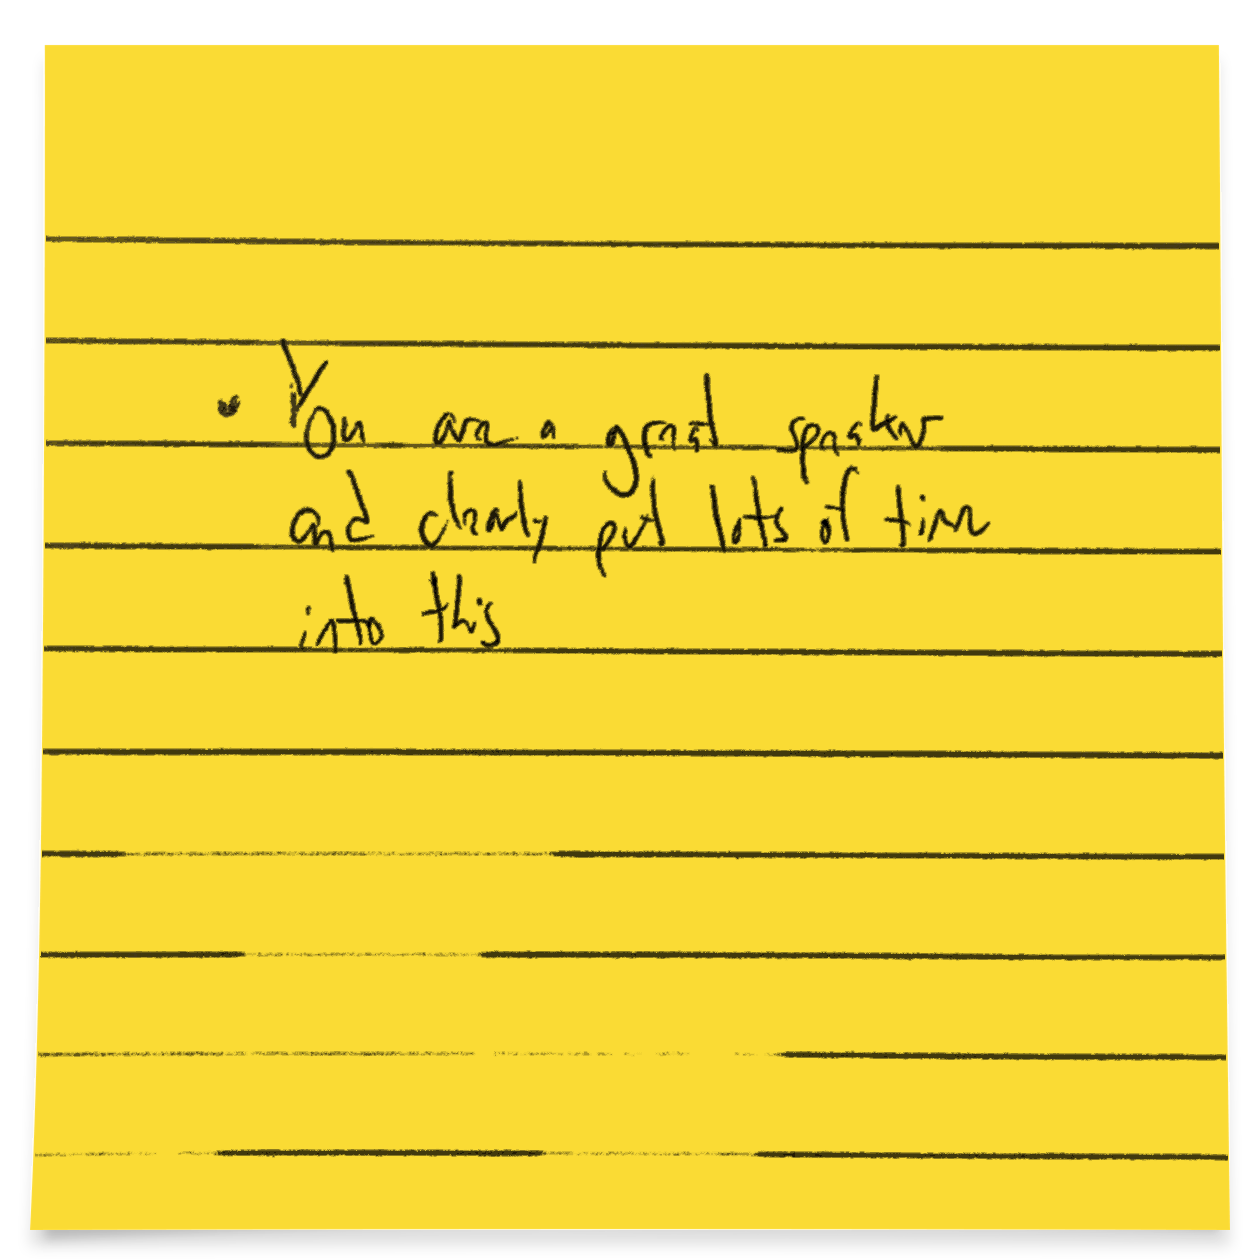 • You are a great speaker
and clearly put lots of time
into this